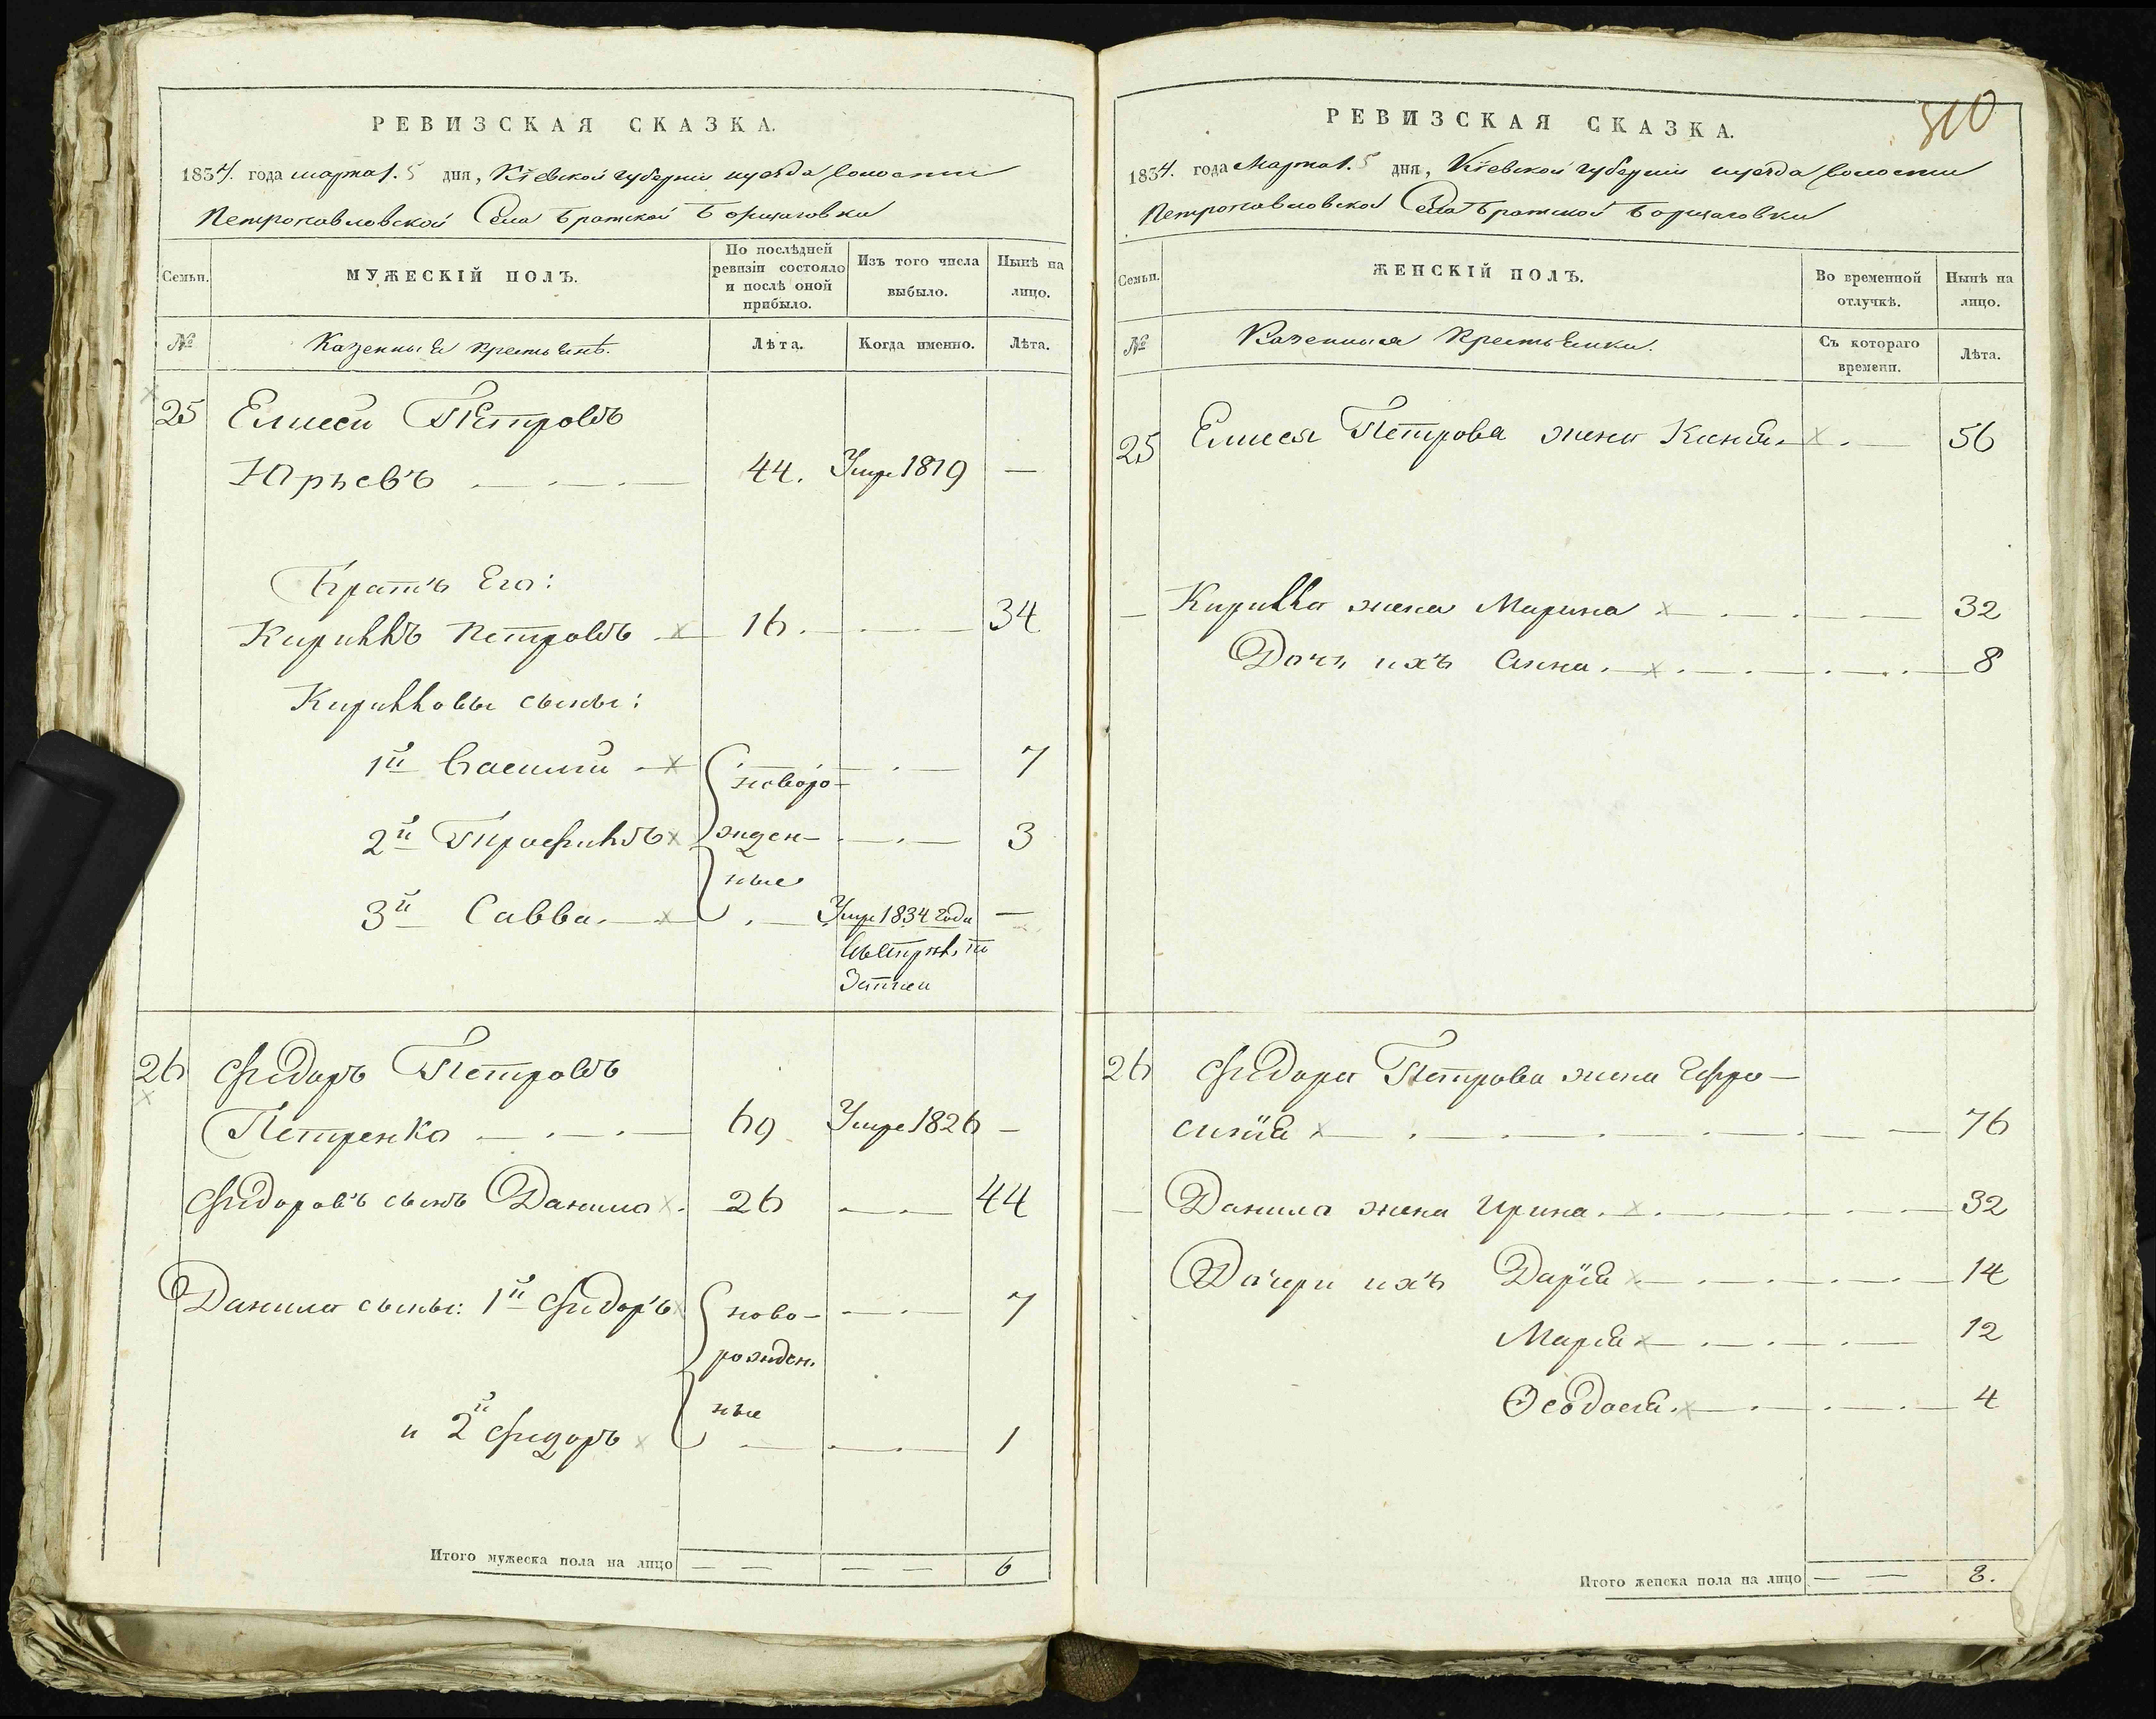 РЕВИЗСКАЯ СКАЗКА.
1834. года марта 1.5 дня, Кіевской губерніи и уезда волости
Петропавловской Села Братской Борщаговки
Семьи.
МУЖЕСКІЙ ПОЛЪ.
По послѣдней ревизіи состояло и послѣ оной прибыло.
Изъ того числа выбыло.
Нынѣ на лицо.
№
Казенныя крестьянѣ.
Лѣта.
Когда именно.
Лѣта.
25 Елисей Петровъ
Юрьевъ 44. Умре 1819 —
Братъ Его:
Кириллъ Петровъ 16. 34
Кирилловы сыны:
1й Василій новоро- 7
2й Трофимъ жден- 3
ные
3й Савва. Умре 1834 года —
26 Фидоръ Петровъ
Петренко 69 Умре 1826 —
Фидоровъ сынъ Данило 26 44
Данила сыны: 1й Фидоръ ново- 7
рожден.
ные
и 2й Фидоръ 1
Итого мужеска пола на лицо — — — — 6
310
РЕВИЗСКАЯ СКАЗКА.
1834. года Марта 1.5 дня, Кіевской губерніи и уезда волости
Петропавловской Села Братской Борщаговки
Семьи.
ЖЕНСКІЙ ПОЛЪ.
Во временной отлучкѣ.
Нынѣ на лицо.
№
Казенныя Крестьянки.
Съ котораго времени.
Лѣта.
25 Елисея Петрова жена 56
— Кирилла жена Марина 32
Дочь ихъ Анна. 8
26 Фидора Петрова жена Ефро-
синія 76
— Данила жена Ирина. 32
Дочери ихъ Дарія 14
Марія 12
Ѳеодосія. 4
Итого женска пола на лицо — — 8.